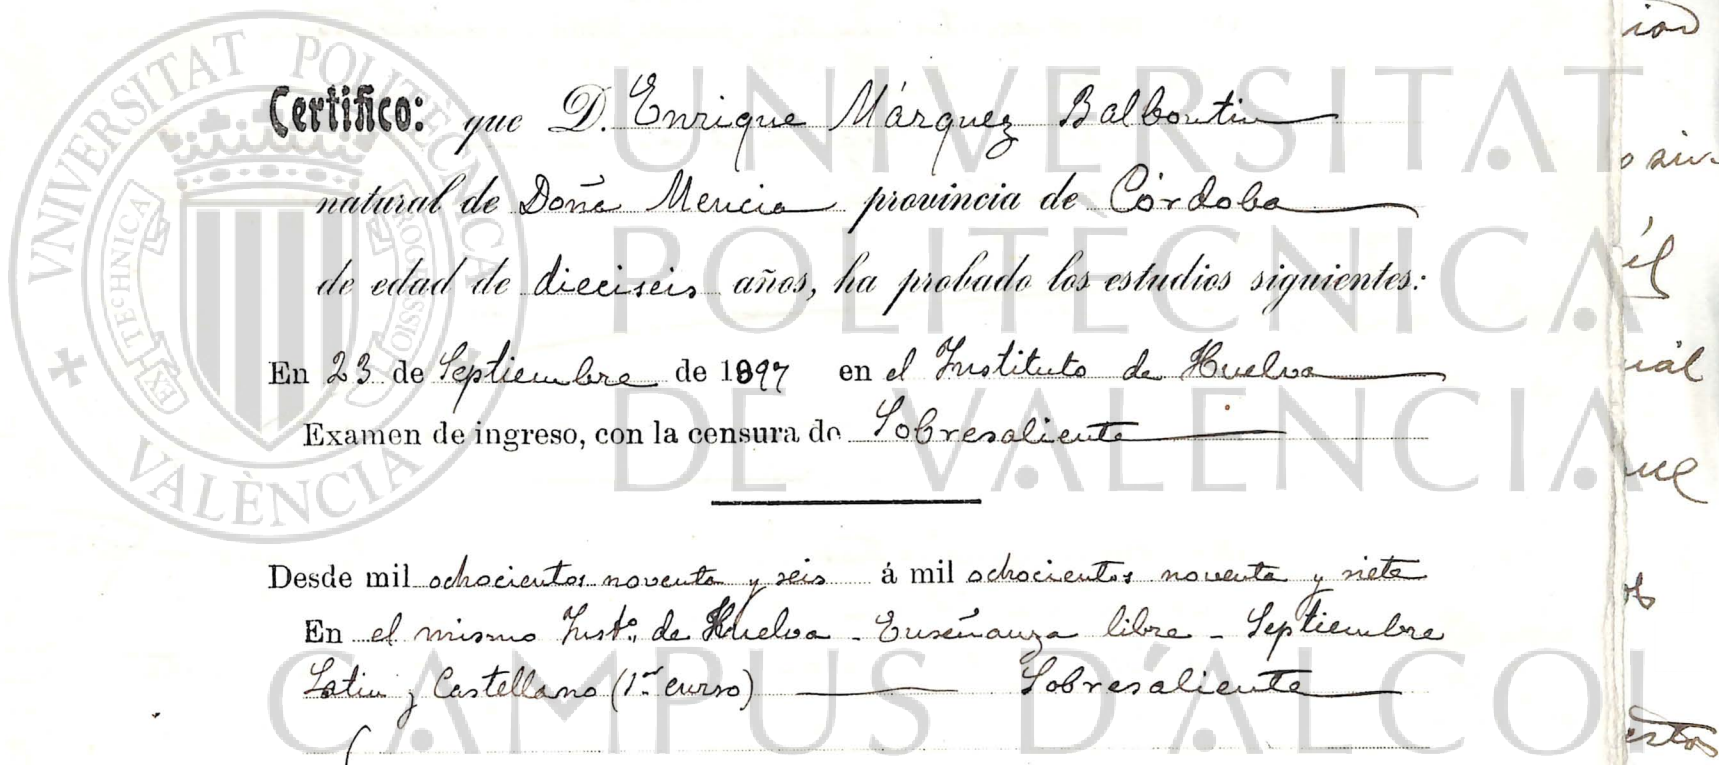 Certifico: que D. Enrique Márquez Balbontin
natural de Doña Mencia provincia de Córdoba
de edad de dieciseis años, ha probado los estudios siguientes:
En 23 de Septiembre de 1897 en el Instituto de Huelva
Examen de ingreso, con la censura de Sobresaliente
Desde mil ochocientos noventa y seis á mil ochocientos noventa y siete
En el mismo Instº. de Huelva - Enseñanza libre - Septiembre
Latin y Castellano (1er curso) Sobresaliente
UNIVERSITAT
POLITÈCNICA
DE VALÈNCIA
CAMPUS D'ALCOI
VNIVERSITAT POLITÈCNICA
VALÈNCIA
EX TECHNICA